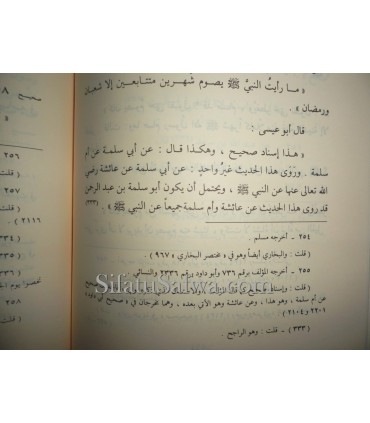 « ما رأيتُ النبيَّ ﷺ يصوم شهرين متتابعين إلا شعبان
ورمضان » .
قال أبو عيسى :
« هذا إسناد صحيح ، وهكذا قال : عن أبي سلمة عن أم
سلمة . وروى هذا الحديث غيرُ واحدٍ : عن أبي سلمة عن عائشة رضي
الله تعالى عنها عن النبي ﷺ ، ويحتمل أن يكون أبو سلمة بن عبد الرحمن
قد روى هذا الحديث عن عائشة وأم سلمة جميعاً عن النبي ﷺ » . (٣٣٣)
٢٥٤ - أخرجه مسلم .
( قلت : والبخاري أيضاً وهو في « مختصر البخاري » ٩٦٧ ) .
٢٥٥ - أخرجه المؤلف برقم ٧٣٦ وأبو داود برقم ٢٣٣٦ والنسائي .
( قلت : وإسناده صحيح
عن أم سلمة ، وهو هذا ، وعن عائشة وهو الآتي بعده ، وهما مخرجان في « صحيح أبي
٢٢٠١ و ٢١٠٤ )
( ٣٣٣ ) - قلت : وهو الراجح .
صحيح
٢٥٦
( قلت
٢٥٧
( قلت
٢١١٦ )
٣٣٤ )
٣٣٥ )
٢٥٨
( قلت
SifatuSafwa.com